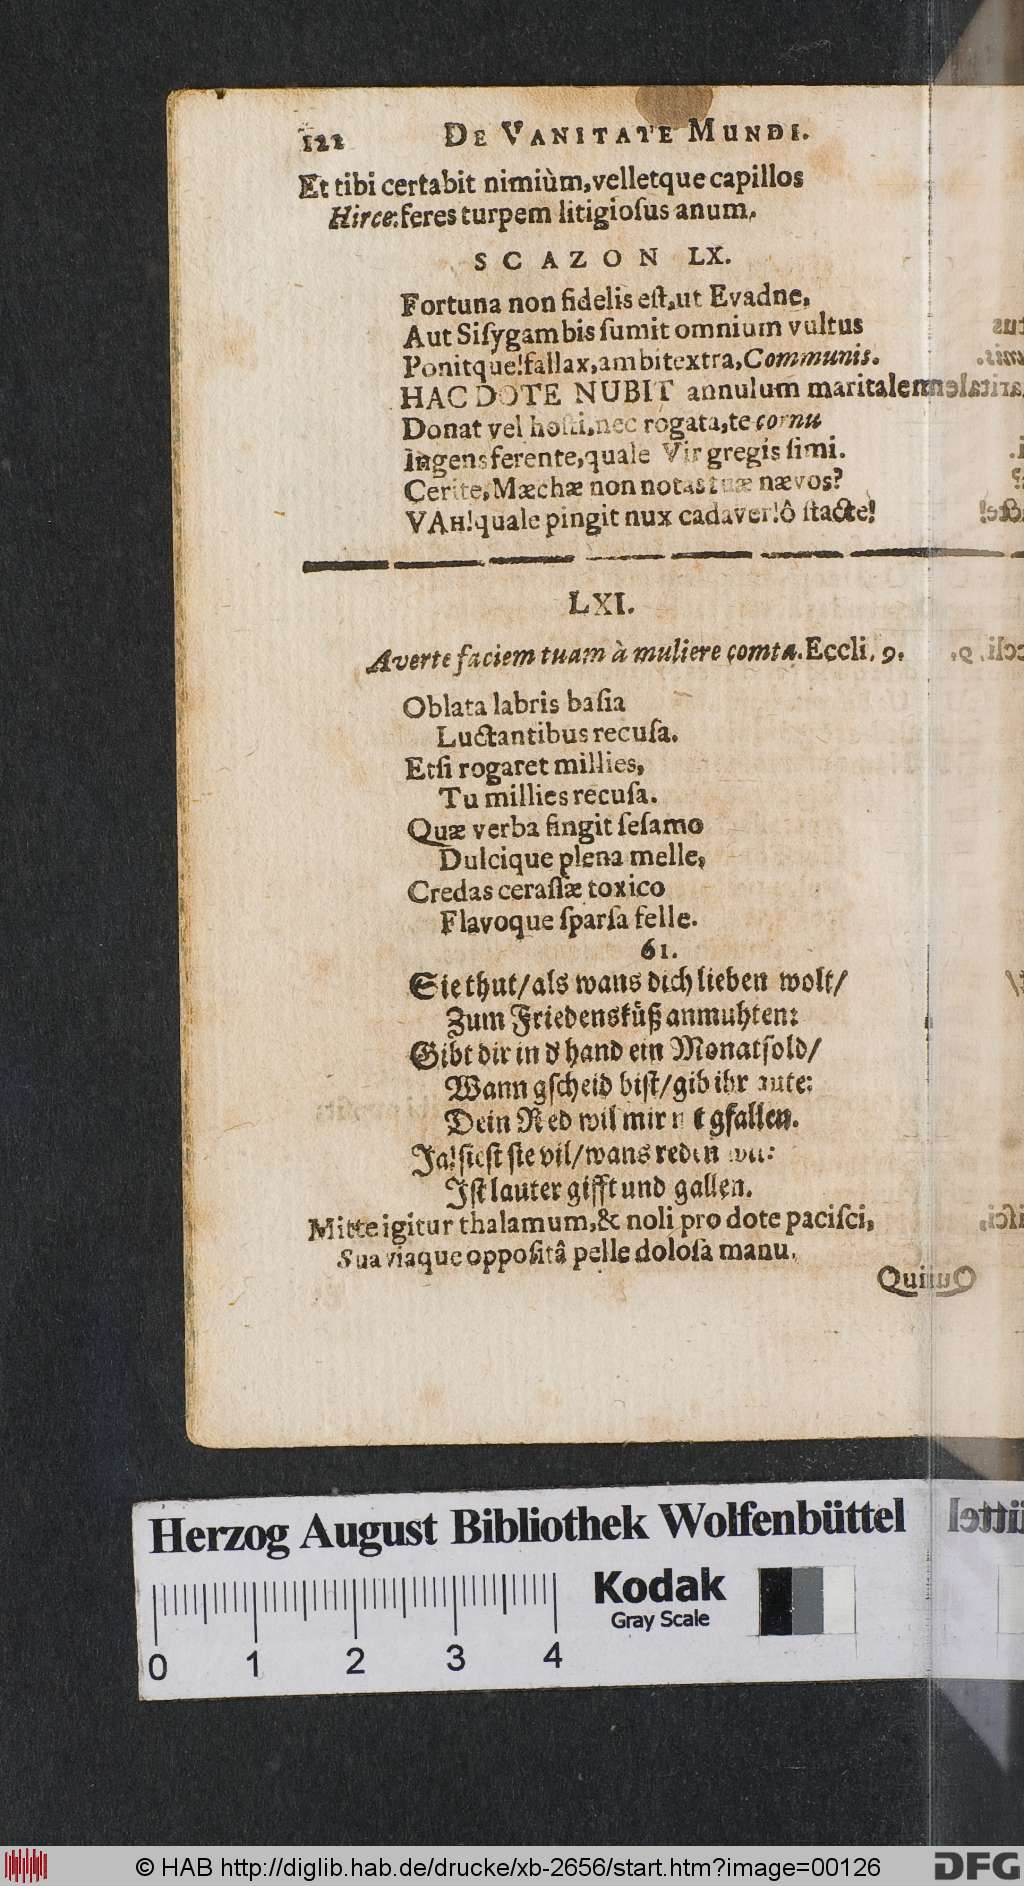 122 DE VANITATE MUNDI.
Et tibi certabit nimiùm, velletque capillos
Hirce: feres turpem litigioſus anum.
SCAZON LX.
Fortuna non fidelis eſt, ut Evadne,
Aut Siſygambis ſumit omnium vultus
Ponitque! fallax, ambitextra, Communis.
HAC DOTE NUBIT annulum maritalem
Donat vel hoſti, nec rogata, te cornu
Ingens ferente, quale Vir gregis ſimi.
Cerite, Mæchæ non notas tuæ nævos?
VAH! quale pingit nux cadaver! ô ſtacte!
LXI.
Averte faciem tuam à muliere comta. Eccli. 9.
Oblata labris baſia
Luctantibus recuſa.
Etſi rogaret millies,
Tu millies recuſa.
Quæ verba fingit ſeſamo
Dulcique plena melle,
Credas ceraſtæ toxico
Flavoque ſparſa felle.
61.
Sie thut/ als wans dich lieben wolt/
Zum Friedensküß anmuhten:
Gibt dir in d' hand ein Monatſold/
Wann gſcheid biſt/ gib ihr
Dein Red wil mir gfallen.
Ja! ſieſt ſie vil/ wans reden
Iſt lauter gifft und gallen.
Mitte igitur thalamum, & noli pro dote paciſci,
Suaviaque oppoſitâ pelle doloſa manu.
Herzog August Bibliothek Wolfenbüttel
Kodak
Gray Scale
0 1 2 3 4
© HAB http://diglib.hab.de/drucke/xb-2656/start.htm?image=00126
DFG